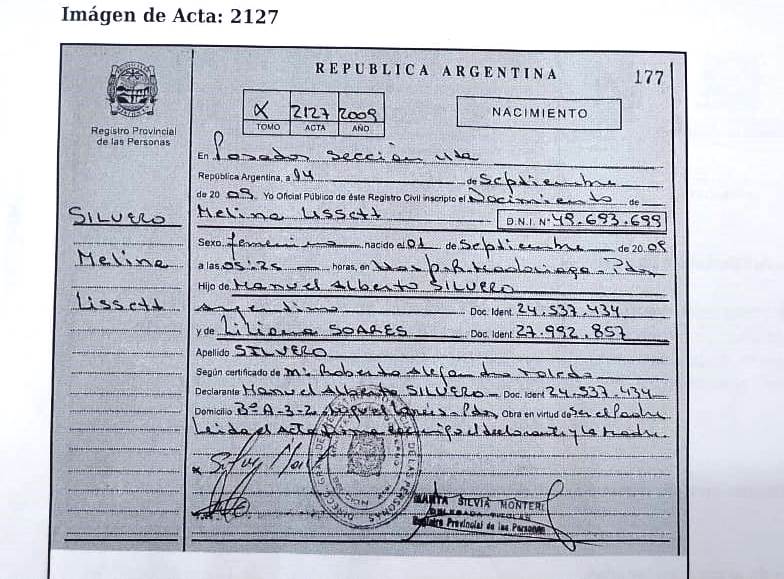 Imágen de Acta: 2127
REPUBLICA ARGENTINA
177
Registro Provincial
de las Personas
α 2127 2009
TOMO ACTA AÑO
NACIMIENTO
En Posadas sección 4ta
República Argentina, a 14 de Septiembre
de 2009. Yo Oficial Público de éste Registro Civil inscripto el Nacimiento de
SILVERO
Melina
Lissett
Melina Lissett D.N.I. Nº 49.693.699
Sexo femenino nacido el 01 de Septiembre de 2009
a las 05:25 horas, en Hosp. R. Madariaga - Pdas
Hijo de Manuel Alberto SILVERO
Argentino Doc. Ident. 24.537.434
y de Liliana SOARES Doc. Ident. 27.992.857
Apellido SILVERO
Según certificado de Roberto Alejandro Toledo
Declarante Manuel Alberto SILVERO - Doc. Ident 24.537.434
Domicilio Bº A-3-2 Pdas Obra en virtud de Ser el Padre
Leida el Acta firma el declarante y la Madre.
MARTA SILVIA MONTERI
DELEGADA TITULAR
Registro Provincial de las Personas